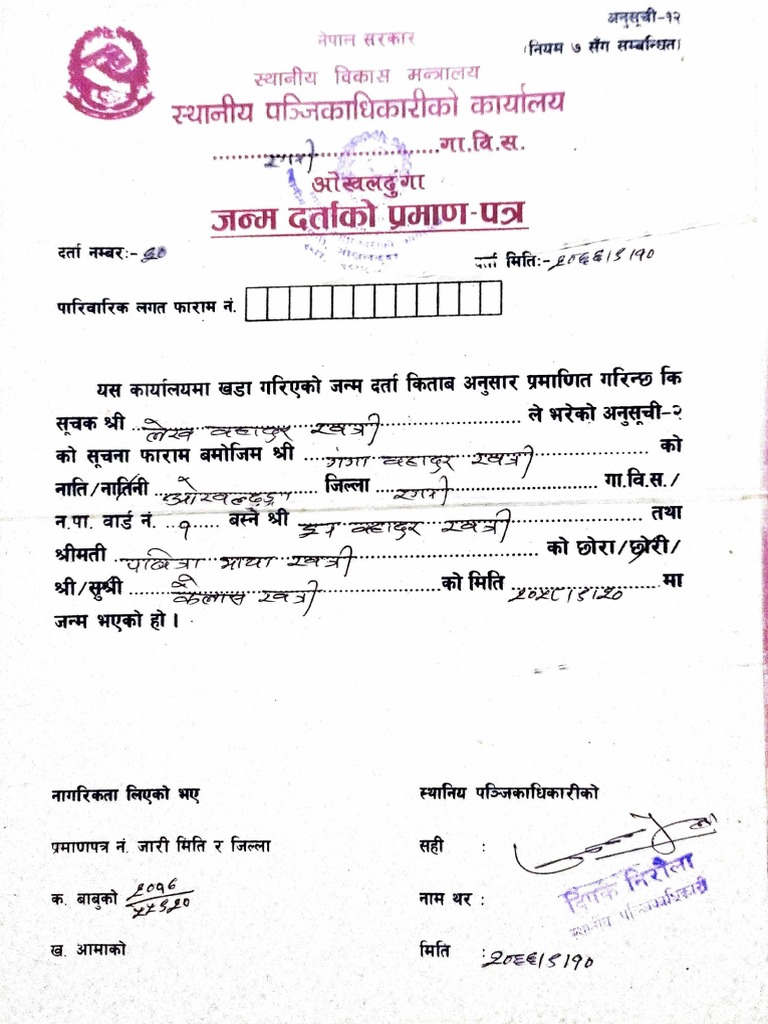 अनुसूची-१२
(नियम ७ सँग सम्बन्धित)
नेपाल सरकार
स्थानीय विकास मन्त्रालय
स्थानीय पञ्जिकाधिकारीको कार्यालय
रगनी गा.वि.स.
ओखलढुंगा
जन्म दर्ताको प्रमाण-पत्र
दर्ता नम्बर:- ६०
दर्ता मिति:- २०६६।९।१०
पारिवारिक लगत फाराम नं.
यस कार्यालयमा खडा गरिएको जन्म दर्ता किताब अनुसार प्रमाणित गरिन्छ कि
सूचक श्री लेख बहादुर खत्री ले भरेको अनुसूची-२
को सूचना फाराम बमोजिम श्री गंगा बहादुर खत्री को
नाति/नातिनी ओखलढुङ्गा जिल्ला रगनी गा.वि.स./
न.पा. वार्ड नं. १ बस्ने श्री बहादुर खत्री तथा
श्रीमती पवित्रा माया खत्री को छोरा/छोरी/
श्री/सुश्री कैलास खत्री को मिति २०५८।९।२० मा
जन्म भएको हो ।
नागरिकता लिएको भए
स्थानिय पञ्जिकाधिकारीको
प्रमाणपत्र नं. जारी मिति र जिल्ला
सही :
क. बाबुको
नाम थर : दिपक निरौला
स्थानीय पञ्जिकाधिकारी
ख. आमाको
मिति : २०६६।९।१०